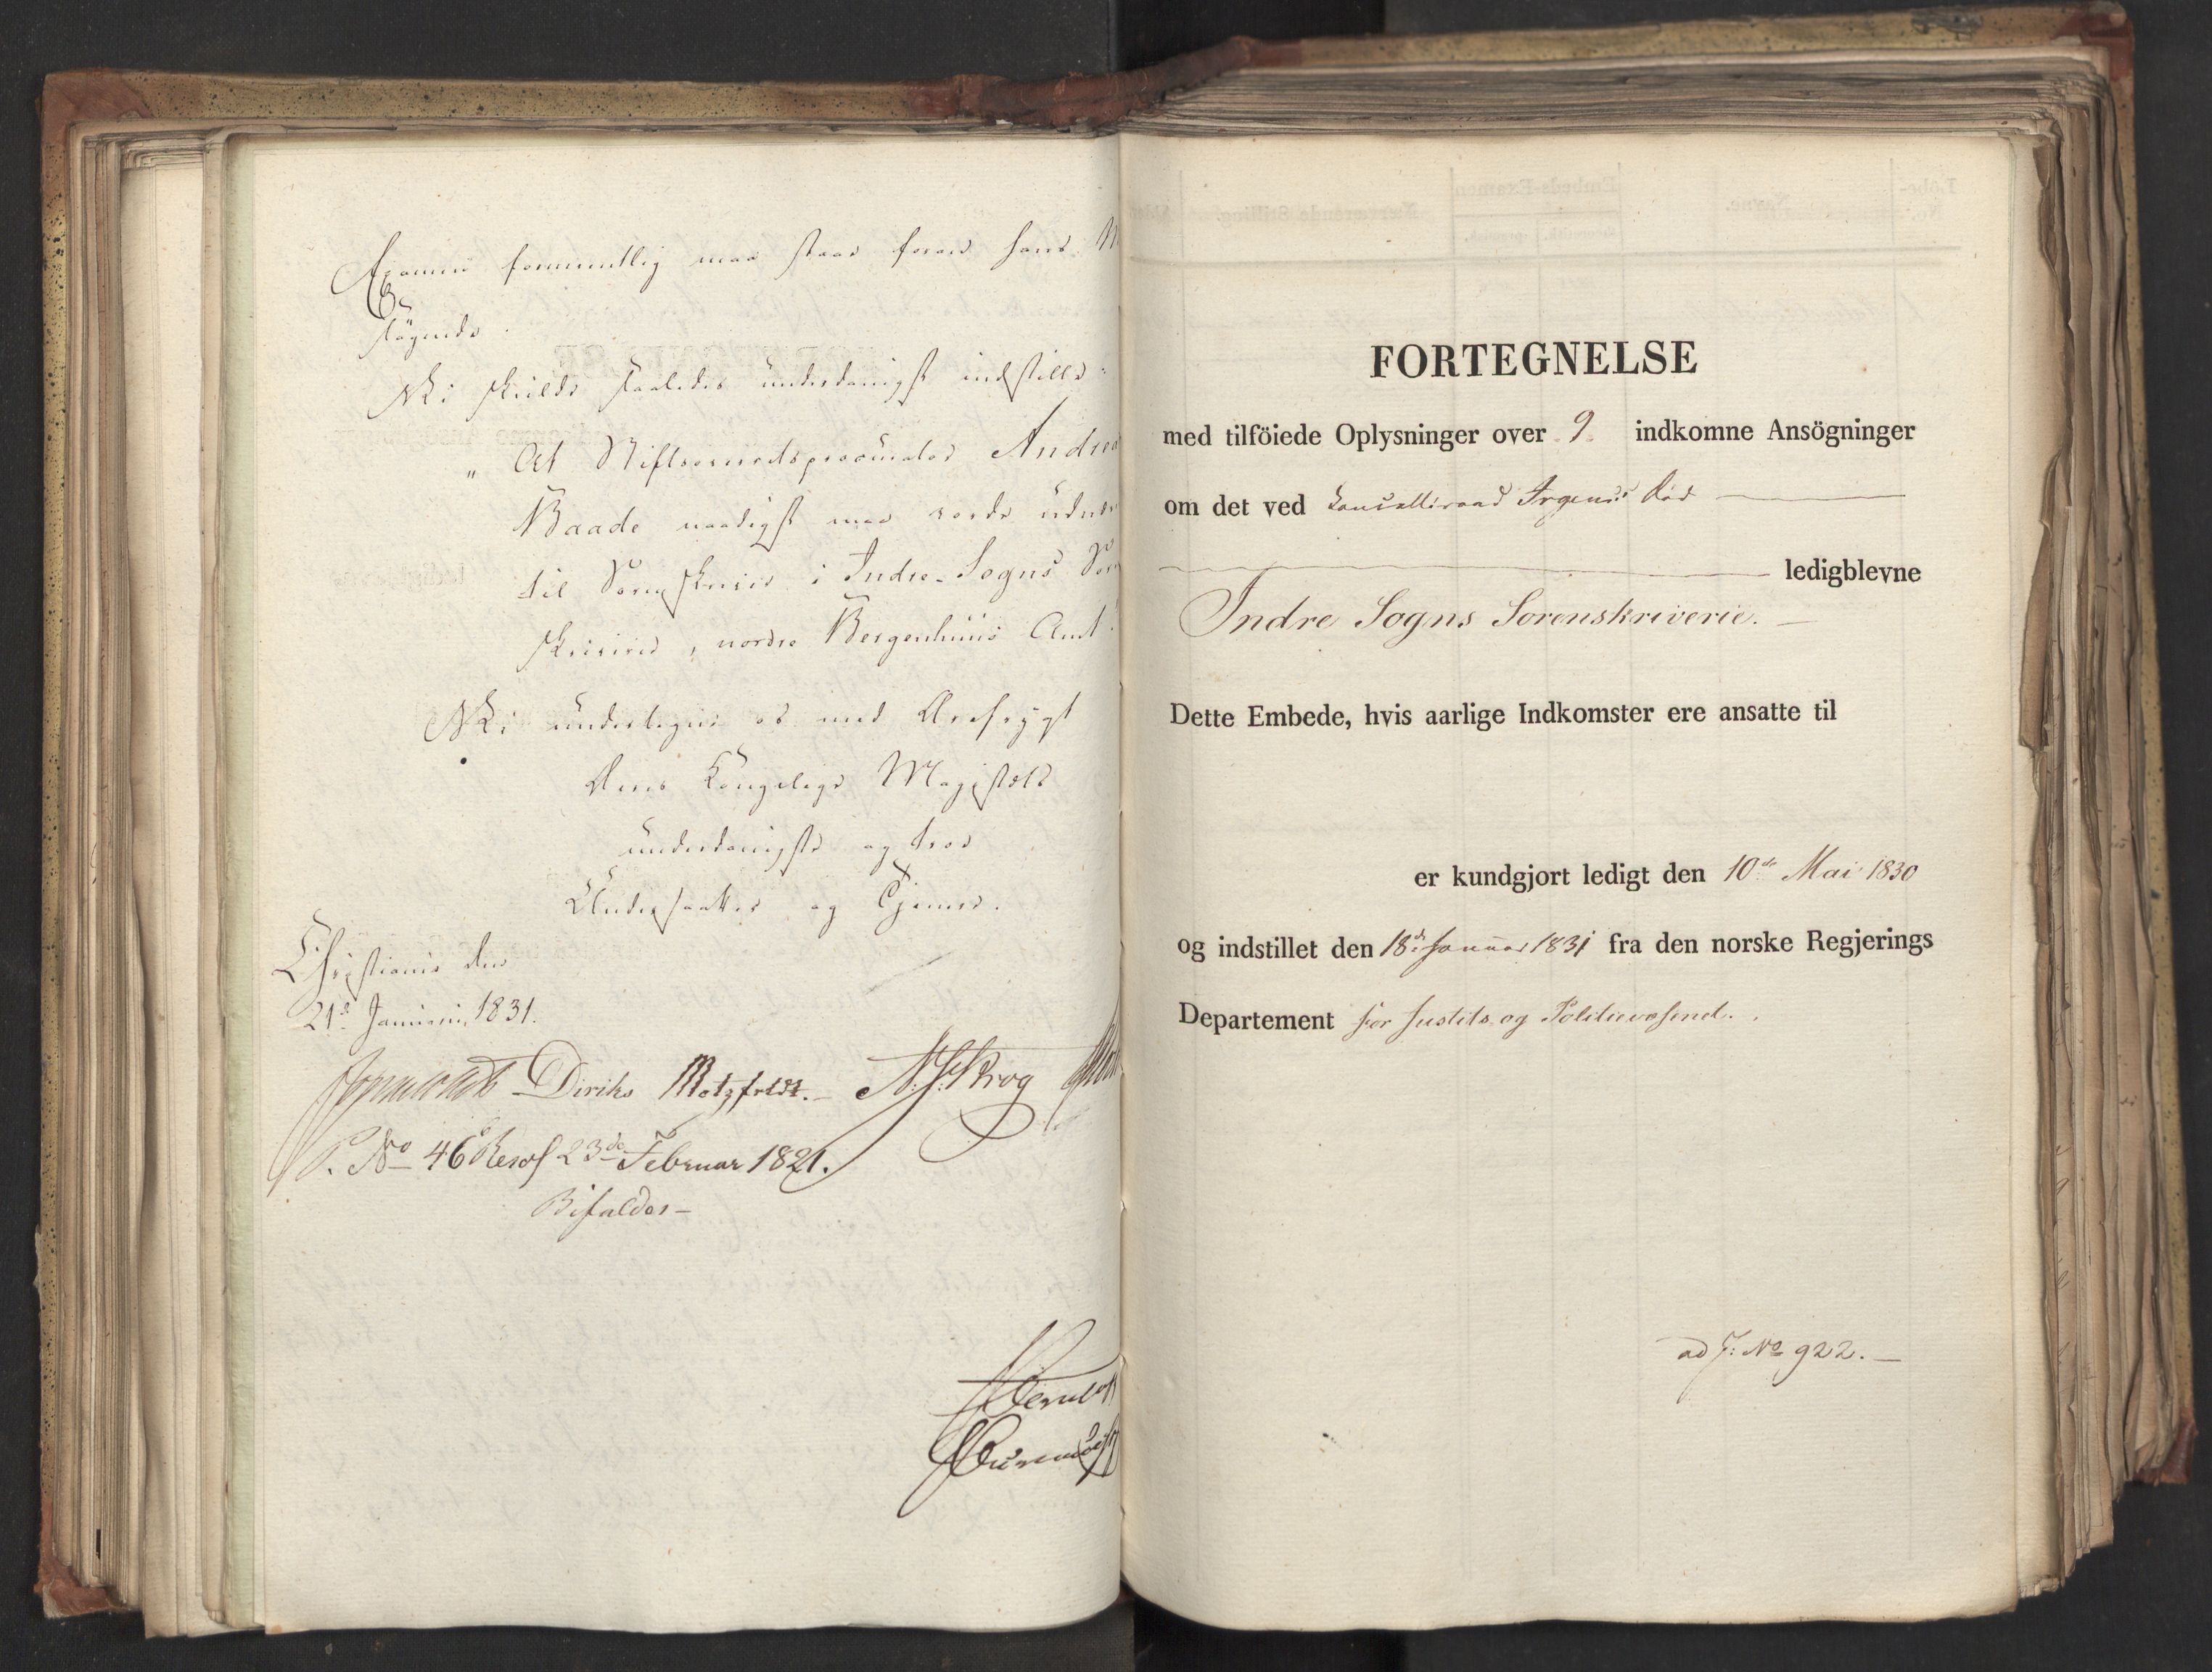 Examen formentlig maa staae foran hans M
søgende.
Vi skulde saaledes underdanigst indstille:
„ At Stiftsoverretsprocurator Andrea
Baade naadigst maa vorde udnæ
til Sorenskriver i Indre-Sogns Sor
skriverie, nordre Bergenhuus Amt.
Vi undertegne os med Ærefrygt
Deres Kongelige Majestæts
underdanigste og troe
Undersaatter og Tjenere.
Christiania den
21de Januarii 1831.
Diriks Motzfeldt. N. J. Krog
P. No 46 Resol 23de Februar 1821.
Bifaldes –
FORTEGNELSE
med tilföiede Oplysninger over 9 indkomne Ansögninger
om det ved Cancelliraad Irgens's Död
ledigblevne
Indre Sogns Sorenskriverie. –
Dette Embede, hvis aarlige Indkomster ere ansatte til
er kundgjort ledigt den 10de Mai 1830
og indstillet den 18de Januar 1831 fra den norske Regjerings
Departement for Justits og Politievæsenet.
ad J: No 922. –